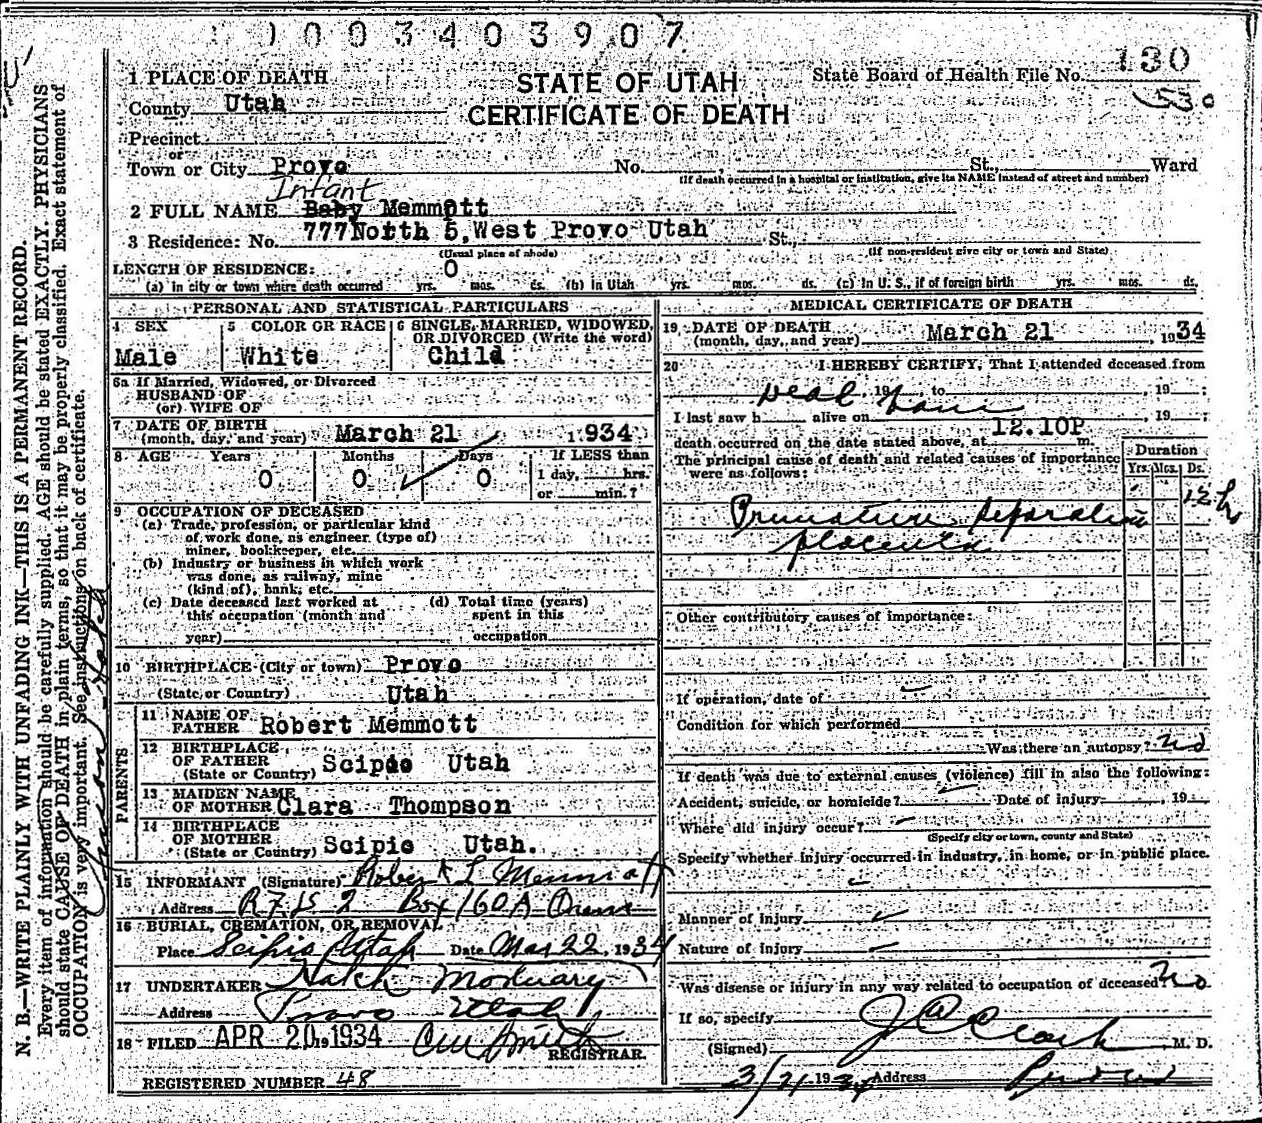 1003403907
130
1 PLACE OF DEATH
STATE OF UTAH
State Board of Health File No.
County Utah
CERTIFICATE OF DEATH
530
Precinct
or
Town or City Provo No. St., Ward
(If death occurred in a hospital or institution, give its NAME instead of street and number)
Infant
2 FULL NAME Baby Memmott
3 Residence: No. 777 North 5, West Provo Utah St.,
(Usual place of abode) (If non-resident give city or town and State)
LENGTH OF RESIDENCE: 0
(a) in city or town where death occurred yrs. mos. ds. (b) In Utah yrs. mos. ds. (c) In U. S., if of foreign birth yrs. mos. ds.
PERSONAL AND STATISTICAL PARTICULARS
4 SEX 5 COLOR OR RACE 6 SINGLE, MARRIED, WIDOWED,
OR DIVORCED (Write the word)
Male White Child
6a If Married, Widowed, or Divorced
HUSBAND OF
(or) WIFE OF
7 DATE OF BIRTH
(month, day, and year) March 21 1934
8 AGE Years Months Days If LESS than
0 0 0 1 day, hrs.
or min.?
9 OCCUPATION OF DECEASED
(a) Trade, profession, or particular kind
of work done, as engineer (type of)
miner, bookkeeper, etc.
(b) Industry or business in which work
was done, as railway, mine
(kind of), bank, etc.
(c) Date deceased last worked at (d) Total time (years)
this occupation (month and spent in this
year) occupation
10 BIRTHPLACE (City or town) Provo
(State or Country) Utah
PARENTS
11 NAME OF
FATHER Robert Memmott
12 BIRTHPLACE
OF FATHER
(State or Country) Scipio Utah
13 MAIDEN NAME
OF MOTHER Clara Thompson
14 BIRTHPLACE
OF MOTHER
(State or Country) Scipio Utah.
15 INFORMANT (Signature) Robert L Memmott
Address R.F.D. 2 Box 160 A Orem
16 BURIAL, CREMATION, OR REMOVAL
Place Scipio Utah Date Mar 22, 1934
17 UNDERTAKER Hatch Mortuary
Address Provo Utah
18 FILED APR 20, 1934
REGISTRAR.
REGISTERED NUMBER 48
MEDICAL CERTIFICATE OF DEATH
19 DATE OF DEATH
(month, day, and year) March 21, 1934
20 I HEREBY CERTIFY, That I attended deceased from
Dead, 19 Born to , 19 ;
I last saw h alive on , 19 ;
death occurred on the date stated above, at 12.10P m.
The principal cause of death and related causes of importance
were as follows:
Duration
Yrs. Mos. Ds.
12 hs
Premature separation
placenta
Other contributory causes of importance:
If operation, date of
Condition for which performed
Was there an autopsy? No
If death was due to external causes (violence) fill in also the following:
Accident, suicide, or homicide? Date of injury , 19
Where did injury occur?
(Specify city or town, county and State)
Specify whether injury occurred in industry, in home, or in public place.
Manner of injury
Nature of injury
Was disease or injury in any way related to occupation of deceased? No
If so, specify
(Signed) J C Clark M. D.
3/21 1934 Address Provo
N. B.—WRITE PLAINLY WITH UNFADING INK—THIS IS A PERMANENT RECORD.
Every item of information should be carefully supplied. AGE should be stated EXACTLY. PHYSICIANS
should state CAUSE OF DEATH in plain terms, so that it may be properly classified. Exact statement of
OCCUPATION is very important. See instructions on back of certificate.